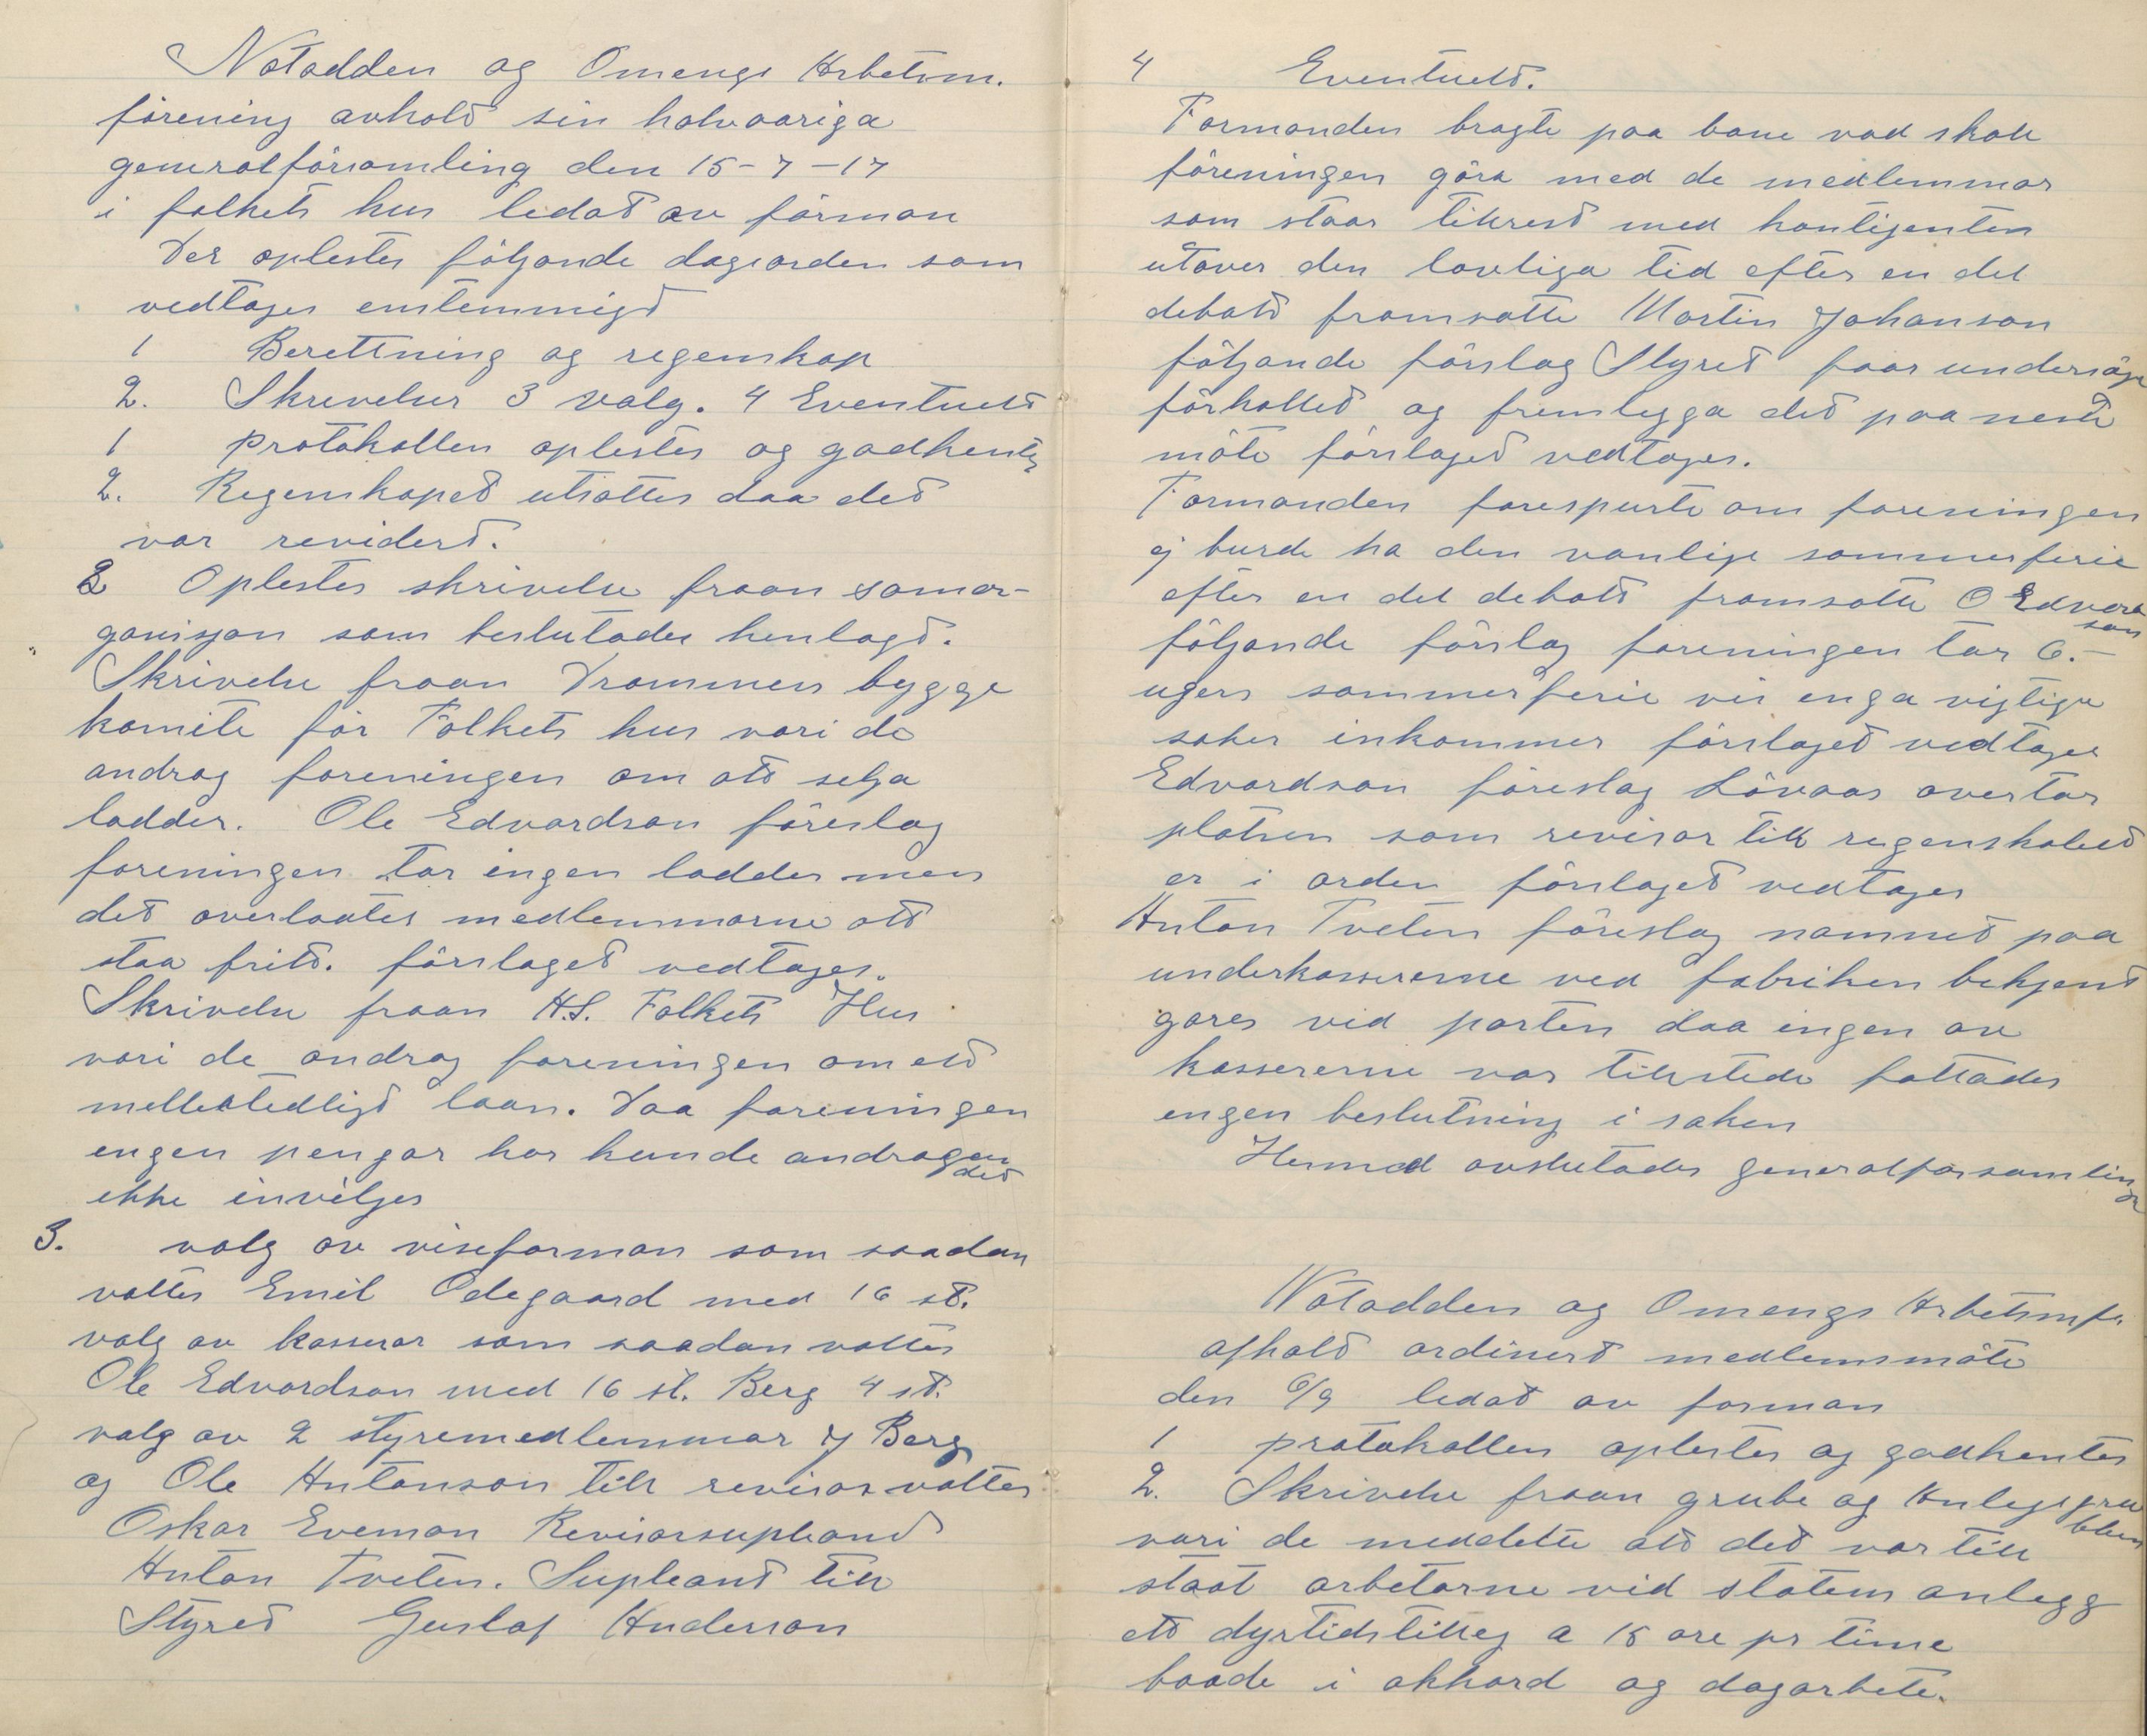 Notodden og Omengs Arbetsm.
förening avholt sin halvaariga
generalförsamling den 15-7-17
i folkets hus ledat av förman
Der oplestes följande dagsorden som
vedtages enstemmigt
1 Berettning og regenskap
2. Skrivelser 3 valg. 4 Eventuelt
1 protokollen oplestes og godkentes
2. Regenskapet utsattes daa det
var revidert.
2 Oplestes skrivelse fraan samor-
ganisjon som beslutades henlagt.
Skrivelse fraan Drammens bygge
komite för Folkets hus vari de
androg foreningen om att selja
lodder. Ole Edvardson föreslog
foreningen tar ingen lodder men
det overlaates medlemmarne att
staa fritt. förslaget vedtages.
Skrivelse fraan A.S. Folkets Hus
vari de androg foreningen om ett
mellestedligt laan. Daa foreningen
engen pengar har kunde andragen
det
ikke invilges
3. valg av viseforman som saadan
valtes Emil Ødegaard med 16 st.
valg av kasserar som saadan valtes
Ole Edvardson med 16 st. Berg 4 st.
valg av 2 styremedlemmar J Berg
og Ole Antonson till revisor valtes
Oskar Eveman Revisorsupleant
Anton Tveten. Supleant till
Styret Gustaf Anderson
4 Eventuelt.
Formanden bragte paa bane vad skall
föreningen göra med de medlemmar
som staar tillrest med kontigenten
utover den lovliga tid efter en del
debatt framsatte Martin Johanson
följande förslag Styret faar undersöge
förhollet og fremlegga det paa neste
möte förslaget vedtages.
Formanden forespurte om foreningen
ej burde ha den vanlige sommerferie
efter en del debatt framsatte O Edvard
son
följande förslag foreningen tar 6.-
ugers sommerferie vis enga vigtige
saker inkommer förslaget vedtages
Edvardson föreslog Lövaas overtar
platsen som revisor till regenskabet
er i orden förslaget vedtages
Anton Tveten föreslog namnet paa
underkassererne ved fabriken bekjent
gores vid porten daa ingen av
kassererne var tillstede fattades
engen beslutning i saken
Hermed avslutades generalforsamling
en
Notodden og Omengs Arbetsmf.
afholt ordinert medlemsmöte
den 6/9 ledat av forman
1 protokollen oplestes og godkentes
2. Skrivelse fraan grube og Anlegsgru
vari de meddelte att det var till
staat arbetarne vid statens anlegg
ett dyrtidstilleg a 15 ore pr time
baade i akkord og dagarbete.